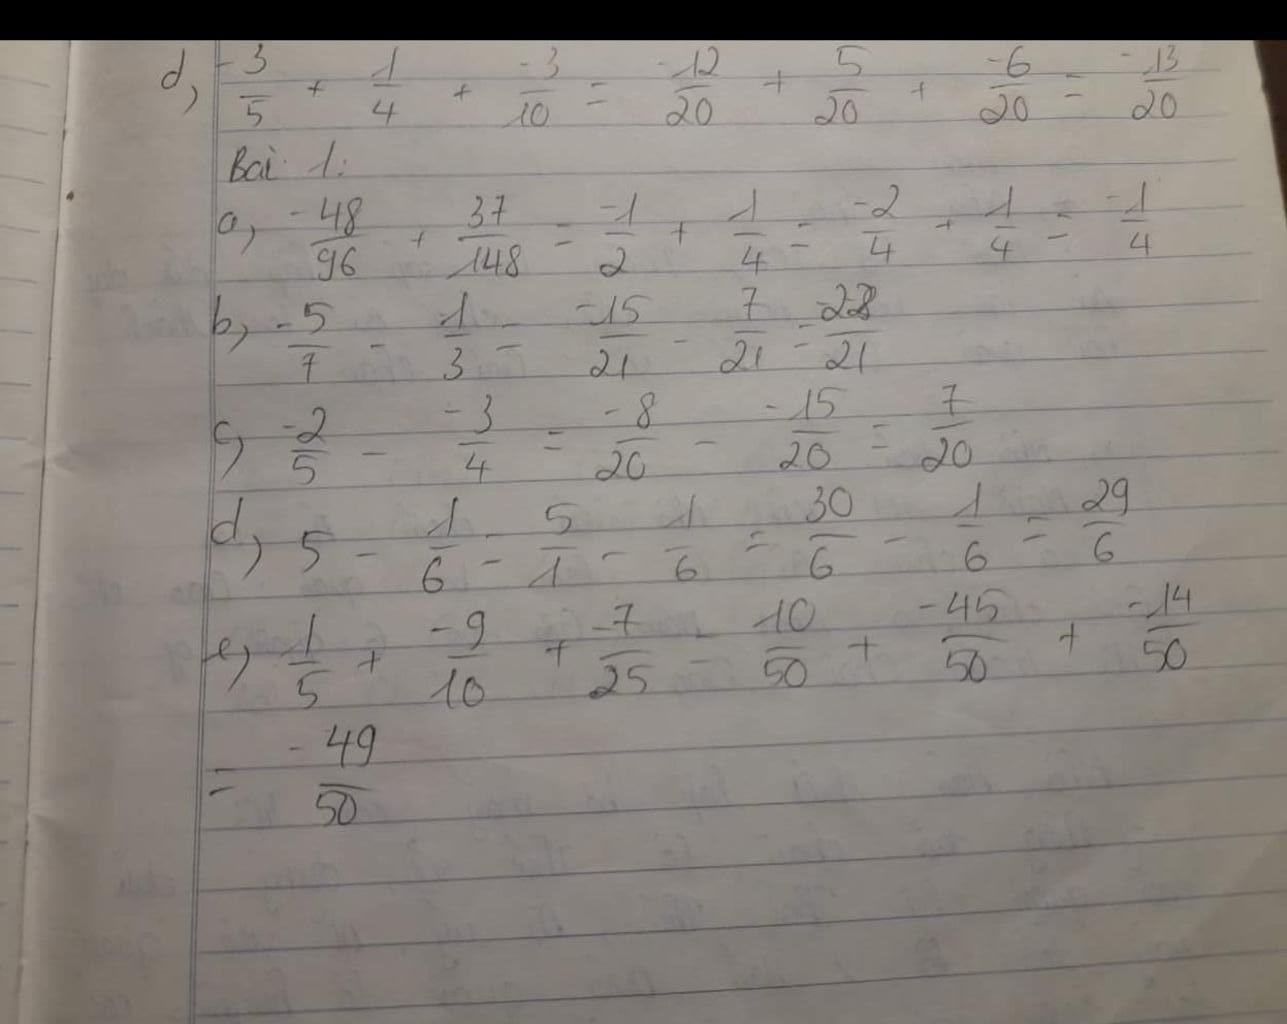 d, -3/5 + 1/4 + -3/10 = -12/20 + 5/20 + -6/20 = -13/20
Bài 1:
a, -48/96 + 37/148 = -1/2 + 1/4 = -2/4 + 1/4 = -1/4
b, -5/7 - 1/3 = -15/21 - 7/21 = -22/21
c, -2/5 - -3/4 = -8/20 - -15/20 = 7/20
d, 5 - 1/6 = 5/1 - 1/6 = 30/6 - 1/6 = 29/6
e, 1/5 + -9/10 + -7/25 = 10/50 + -45/50 + -14/50
= -49/50